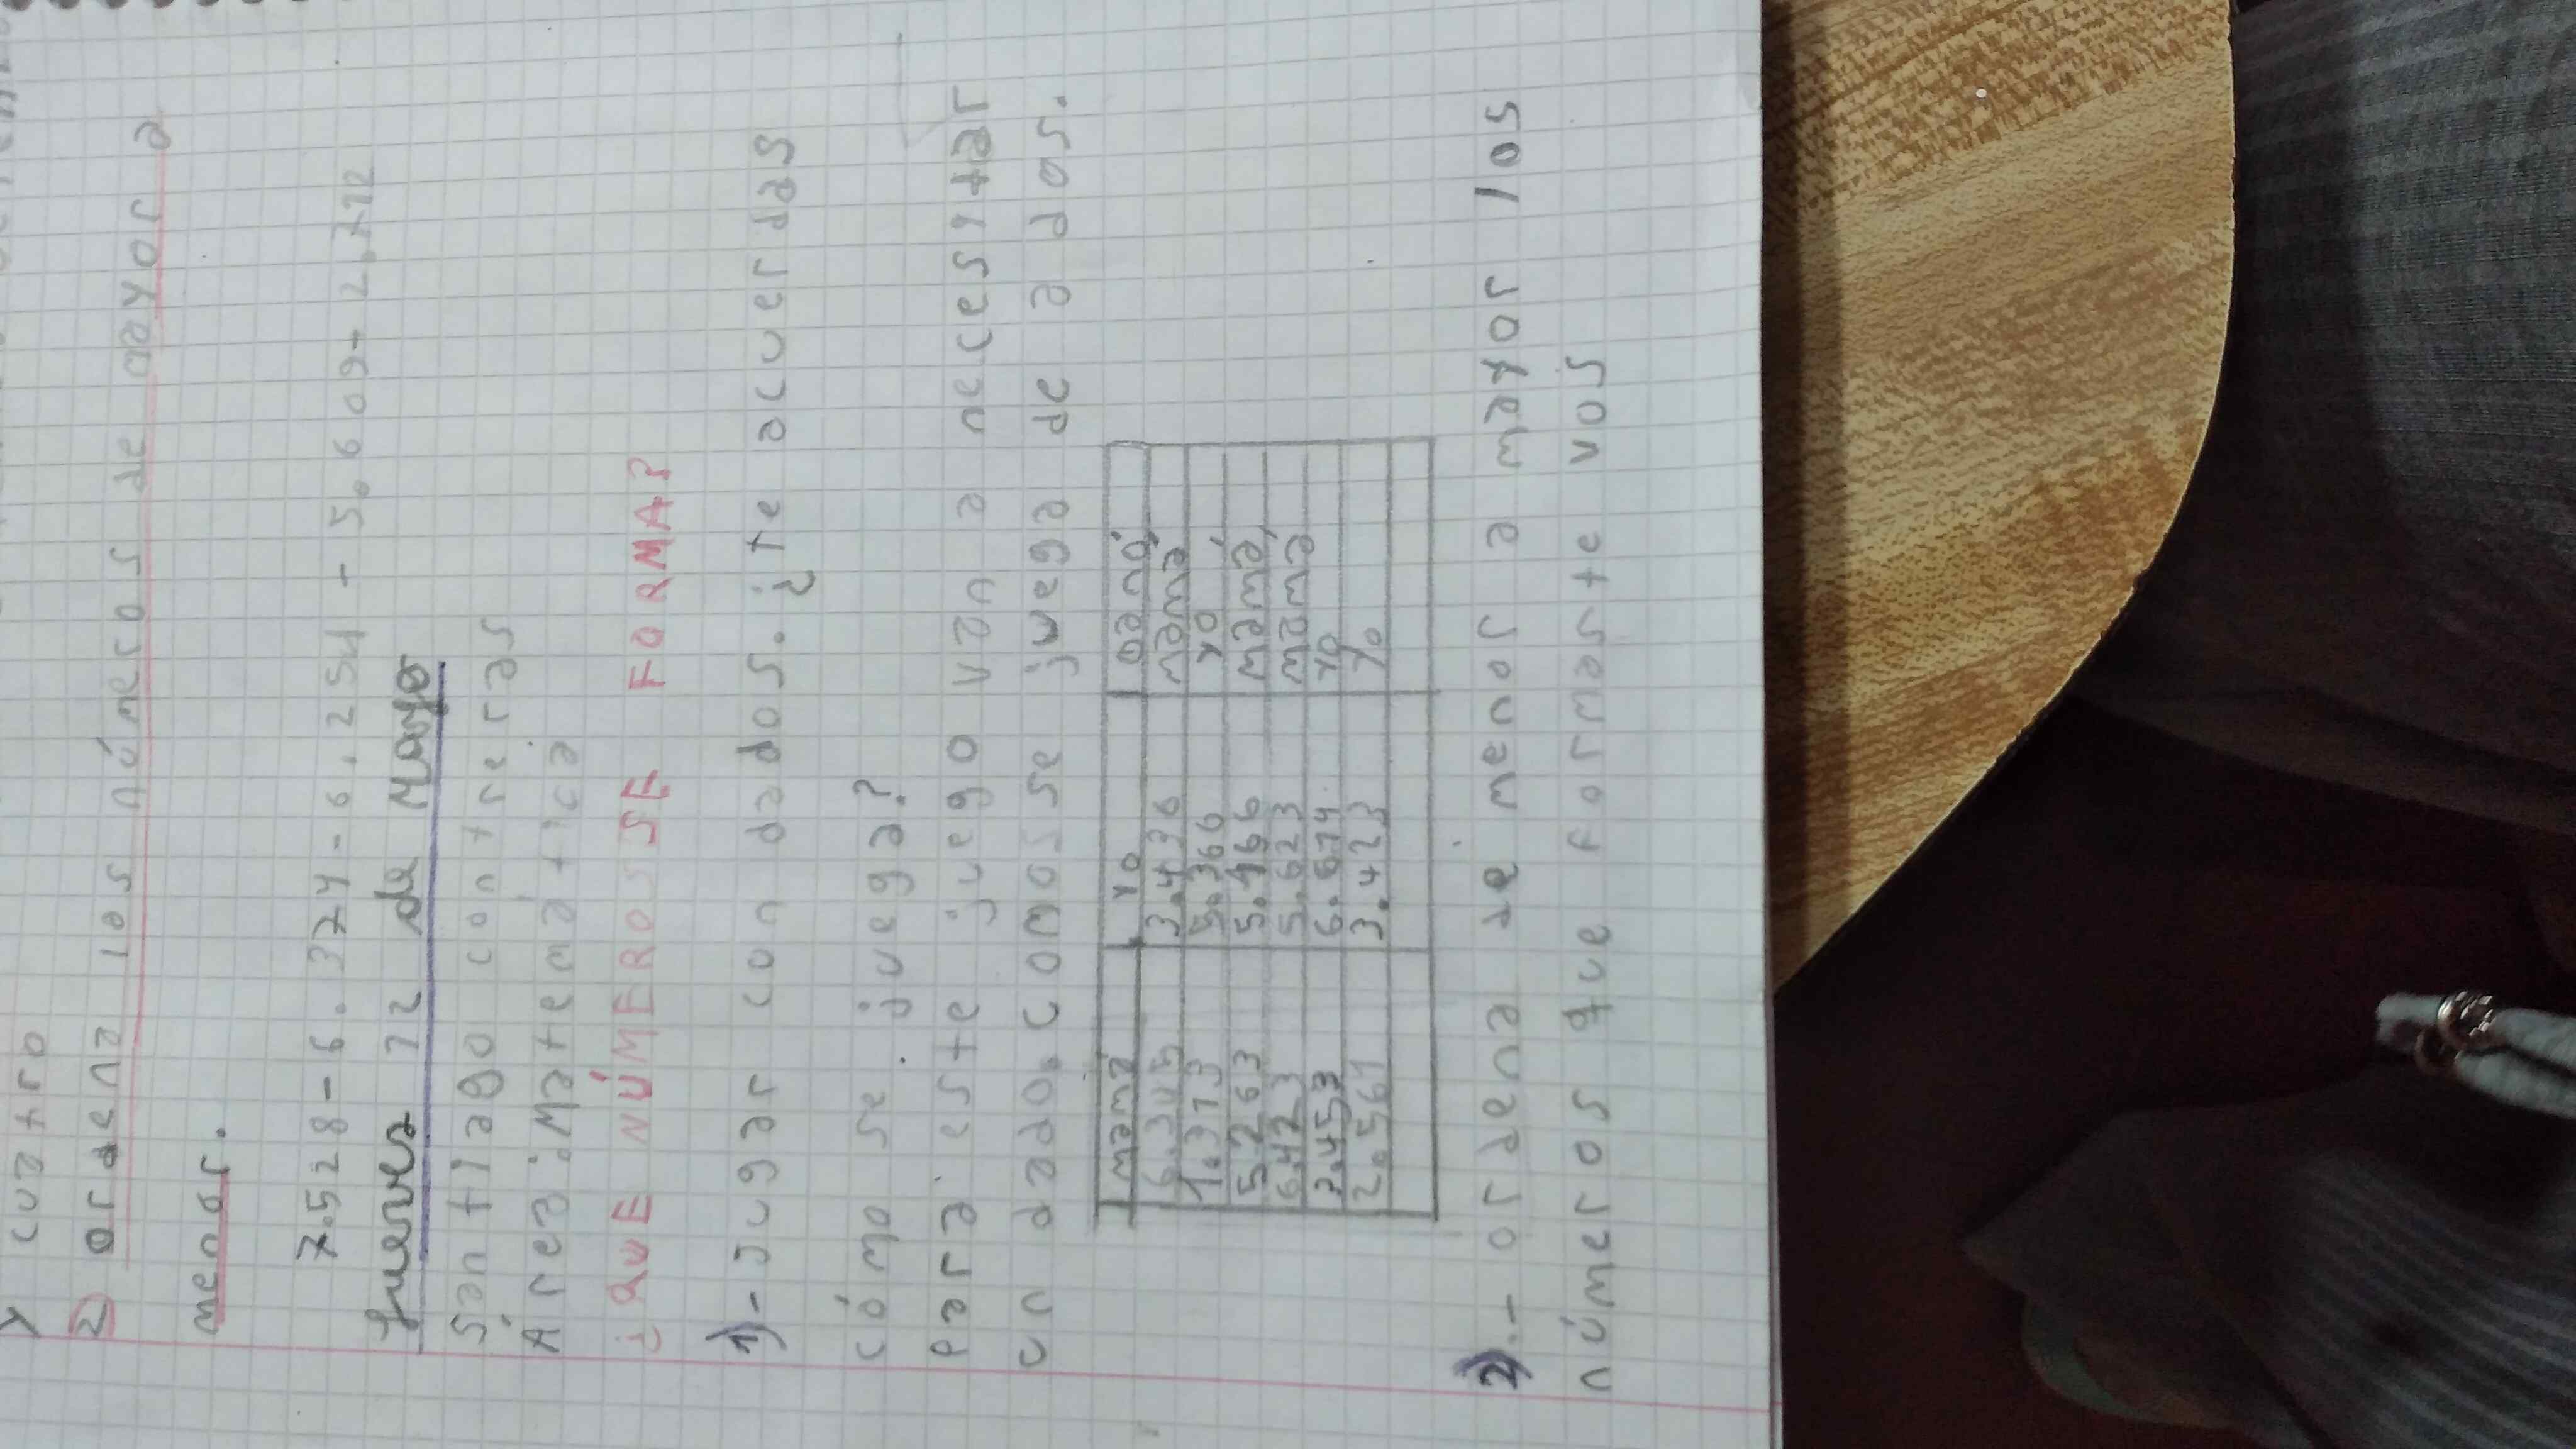 y cuatro
2) ordena los números de mayor a
menor.
7.528-6.374-6.251-5.609-2.712
jueves 12 de Mayo
Santiago contreras
Área: Matemática
¿QUE NÚMEROS SE FORMA?
1)-Jugar con dados. ¿te acuerdas
cómo se juega?
Para este juego van a necesytar
un dado. COMO se juega de a dos.
mamá yo ganó
6.305 3.436 mamá
1.313 5.366 yo
5.263 5.166 mamá
6.423 5.623 mama
3.453 6.614 yo
2.561 3.423 yo
2).- ordena de menor a mayor los
números que formaste vos